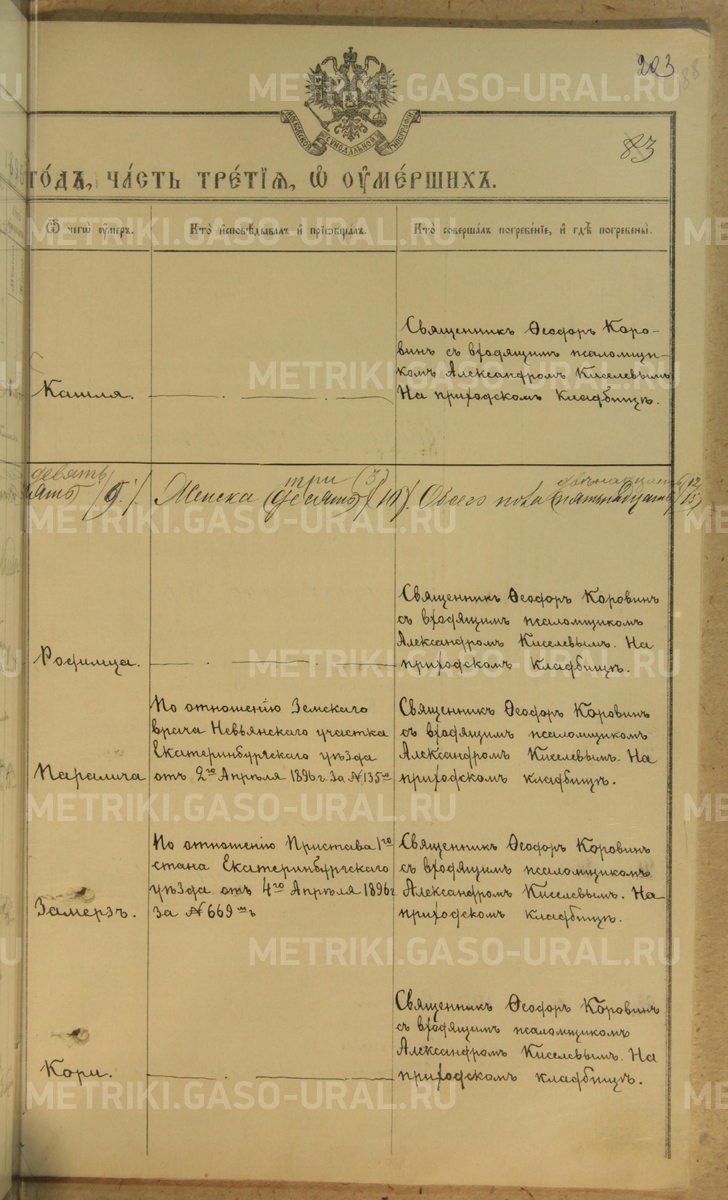 203
88
83
МОСКОВСКОЙ СѴНОДАЛЬНОЙ ТИПОГРАФІИ
го́дъ, ча́сть тре́тїѧ, ѡ҆ оу҆ме́ршихъ.
Ѿ чегѡ̀ оу҆́меръ.
Кто̀ и҆сповѣ́дывалъ и҆ прїѡбща́лъ.
Кто̀ соверша́лъ погребе́нїе, и҆ гдѣ̀ погребены̀.
Кашля.
Священникъ Ѳеодоръ Коро-
винъ съ входящимъ псаломщи-
комъ Александромъ Киселевымъ
На приходскомъ кладбищѣ.
девять три (3) двѣнадцать 12
(9). Женска (десять) (10). Обоего пола (пятьнадцать) 15)
Родимца.
Священникъ Ѳеодоръ Коровинъ
съ входящимъ псаломщикомъ
Александромъ Киселевымъ. На
приходскомъ кладбищѣ.
Паралича
По отношенію Земскаго
врача Невьянскаго участка
Екатеринбургскаго уѣзда
отъ 2го Апрѣля 1896 г. за № 135мъ
Священникъ Ѳеодоръ Коровинъ
съ входящимъ псаломщикомъ
Александромъ Киселевымъ. На
приходскомъ кладбищѣ.
Замерзъ.
По отношенію Пристава 1го
стана Екатеринбургскаго
уѣзда отъ 4го Апрѣля 1896 г
за № 669мъ
Священникъ Ѳеодоръ Коровинъ
съ входящимъ псаломщикомъ
Александромъ Киселевымъ. На
приходскомъ кладбищѣ.
Кори.
Священникъ Ѳеодоръ Коровинъ
съ входящимъ псаломщикомъ
Александромъ Киселевымъ. На
приходскомъ кладбищѣ.
METRIKI.GASO-URAL.RU